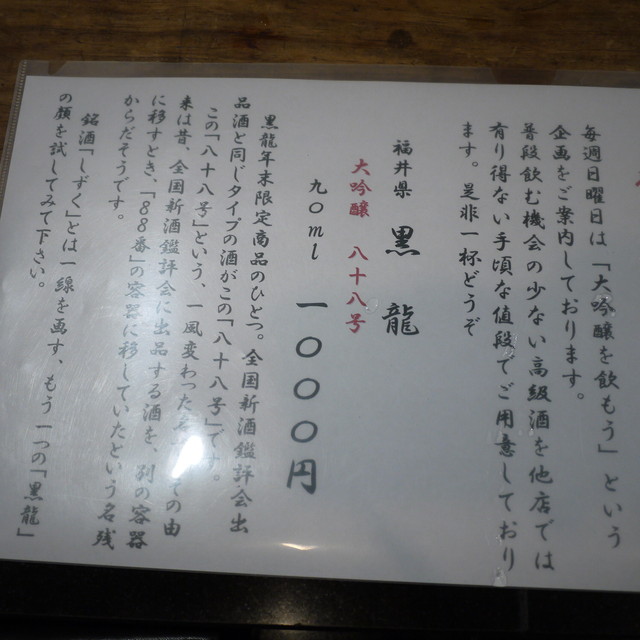 毎週日曜日は「大吟醸を飲もう」という
企画をご案内しております。
普段飲む機会の少ない高級酒を他店では
有り得ない手頃な値段でご用意しており
ます。是非一杯どうぞ
福井県 黒龍
大吟醸 八十八号
九〇ml 一〇〇〇円
黒龍年末限定商品のひとつ。全国新酒鑑評会出
品酒と同じタイプの酒がこの「八十八号」です。
この「八十八号」という、一風変わった
ての由
来は昔、全国新酒鑑評会に出品する酒を、別の容器
に移すとき、「88番」の容器に移していたという名残
からだそうです。
銘酒「しずく」とは一線を画す、もう一つの「黒龍」
の顔を試してみて下さい。